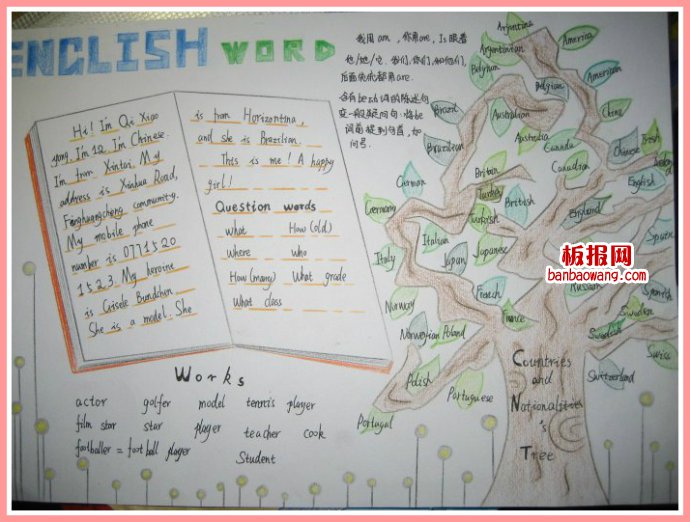 ENGLISH WORD
Hi! I'm Qi Xiao
yong. I'm 12. I'm Chinese.
I'm from Xintai. My
address is Xinhua Road,
Fenghuangcheng community.
My mobile phone
number is 0771520
1523. My heroine
is Gisele Bundchen.
She is a model. She
is from Horizontina,
and she is Brazilian.
This is me! A happy
girl!
Question words
what How(old)
where who
How(many) What grade
What class
我用am，你用are，Is跟着
他/她/它. 我们,你们,和他们,
后面统统都用are.
含有be动词的陈述句
变一般疑问句：将be
词前提到句首，加
问号.
Works
actor golfer model tennis player
film star star player teacher cook
footballer = football player
Student
Argentina
Argentinian
America
Belgian
American
Brazil
Australian
China
Brazilian
Australia
Canada
Chinese
British
German
Britain
Canadian
English
Germany
Turkey
British
Turkish
England
Italian
Japanese
Spain
Italy
Japan
French
Russian
Spanish
Norway
France
Sweden
Norwegian
Poland
Swedish
Swiss
Polish
Portuguese
Switzerland
Portugal
Countries
and
Nationalities
's
Tree
板报网
banbaowang.com